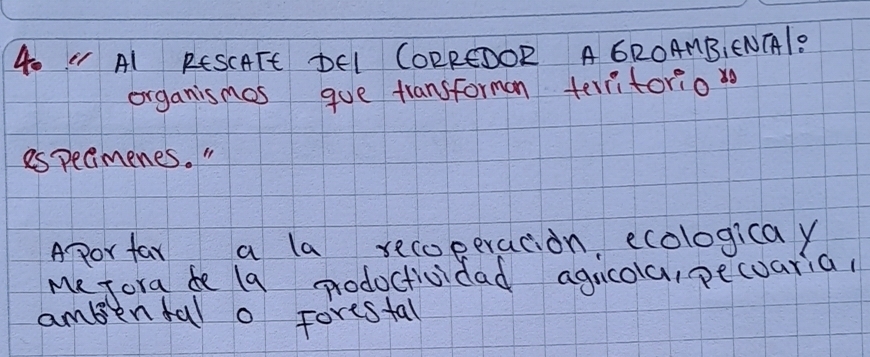 4. " Al RESCATE DEl CORREDOR AGROAMBIENTAl:
organismos que transforman territorio"
especimenes."
Aportar a la recoperación, ecologica y
Mejora de la productividad agricola, pecuaria,
ambiental o Forestal